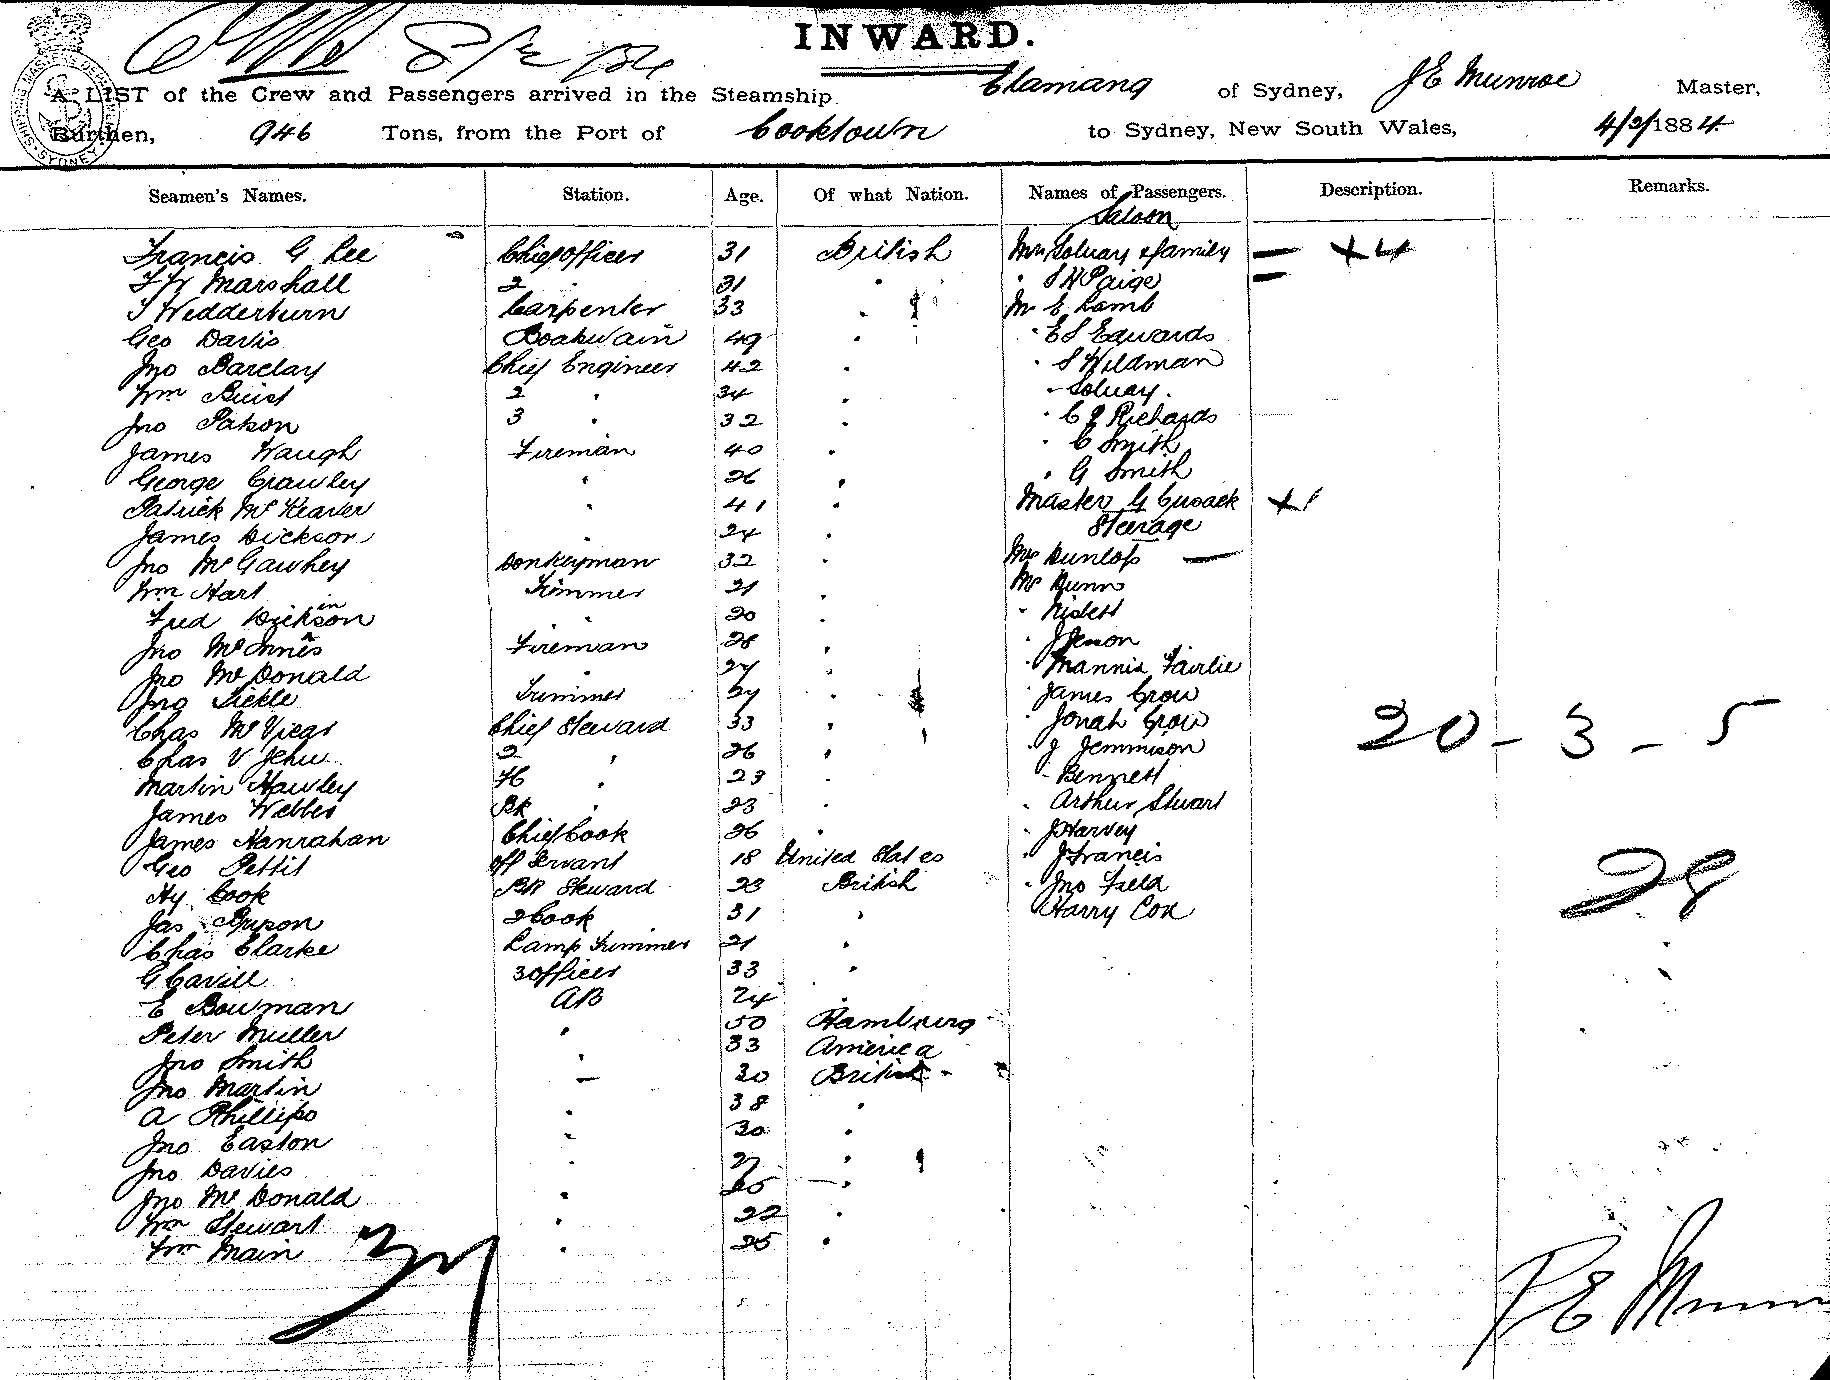 INWARD.
A LIST of the Crew and Passengers arrived in the Steamship Elamang of Sydney, J E Munroe Master,
Burthen, 946 Tons, from the Port of Cooktown to Sydney, New South Wales, 4/2/1884
Seamen's Names. Station. Age. Of what Nation. Names of Passengers. Description. Remarks.
Saloon
Francis G Lee Chief Officer 31 British Mrs Solway & family — X4
Marshall 2 " 31 " " S H Paige —
Wedderburn Carpenter 33 " Mr E Lamb
Geo Davis Boatswain 49 " " E S Edwards
Jno Barclay Chief Engineer 42 " " S Wildman
Wm Buist 2 " 34 " " Solway.
Jno Paton 3 " 32 " " C Richards
James Waugh Fireman 40 " " C Smith
George Crawley " 26 " " G Smith
Patrick McKeaver " 41 " Master G Cusack X1
James Dickson " 24 " Steerage
Jno McGawhey Donkeyman 32 " Mrs Dunlop —
Wm Hart Trimmer 21 " Mr Dunn
Fred Dickinson " 20 " " Nisbett
Jno McInnes Fireman 28 " "
Jno McDonald " 27 " " Mannis Fairlie
Jno Sickle Trimmer " " James Crow
Chas McVicar Chief Steward 33 " " Jonah Crow
Chas V Jehu 2 " 26 " " J Jemmison
Martin Hawley " 23 " " Bennett
James Webber BR " 23 " " Arthur Stuart
James Hanrahan Chief Cook 26 " " J Harvey
Geo Pettit Off Servant 18 United States " J Francis
Hy Cook BR Steward 23 British " Jno Field
Jas 2 Cook 31 " Harry Cox
Chas Clarke Lamp Trimmer 21 "
G Cavill 3 Officer 33 "
E Bowman AB 24 "
Peter Muller " 50 Hamburg
Jno Smith " 33 America
Jno Martin — 30 British
A Phillips " 38 "
Jno Easton " 30 "
Jno Davies " 27 "
Jno McDonald " 25 "
Wm Stewart " 22 "
Wm Main " 25 "
37
20 - 3 - 5
28
J E Munroe